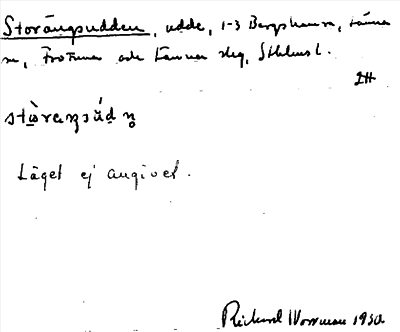 Storängsudden, udde, 1-3 Bergshamra,
sn, Frötuna och Länna slg, Sthlms l.
2H
stòreŋsúdn̥
Läget ej angivet.
Rickard Wornman 1930